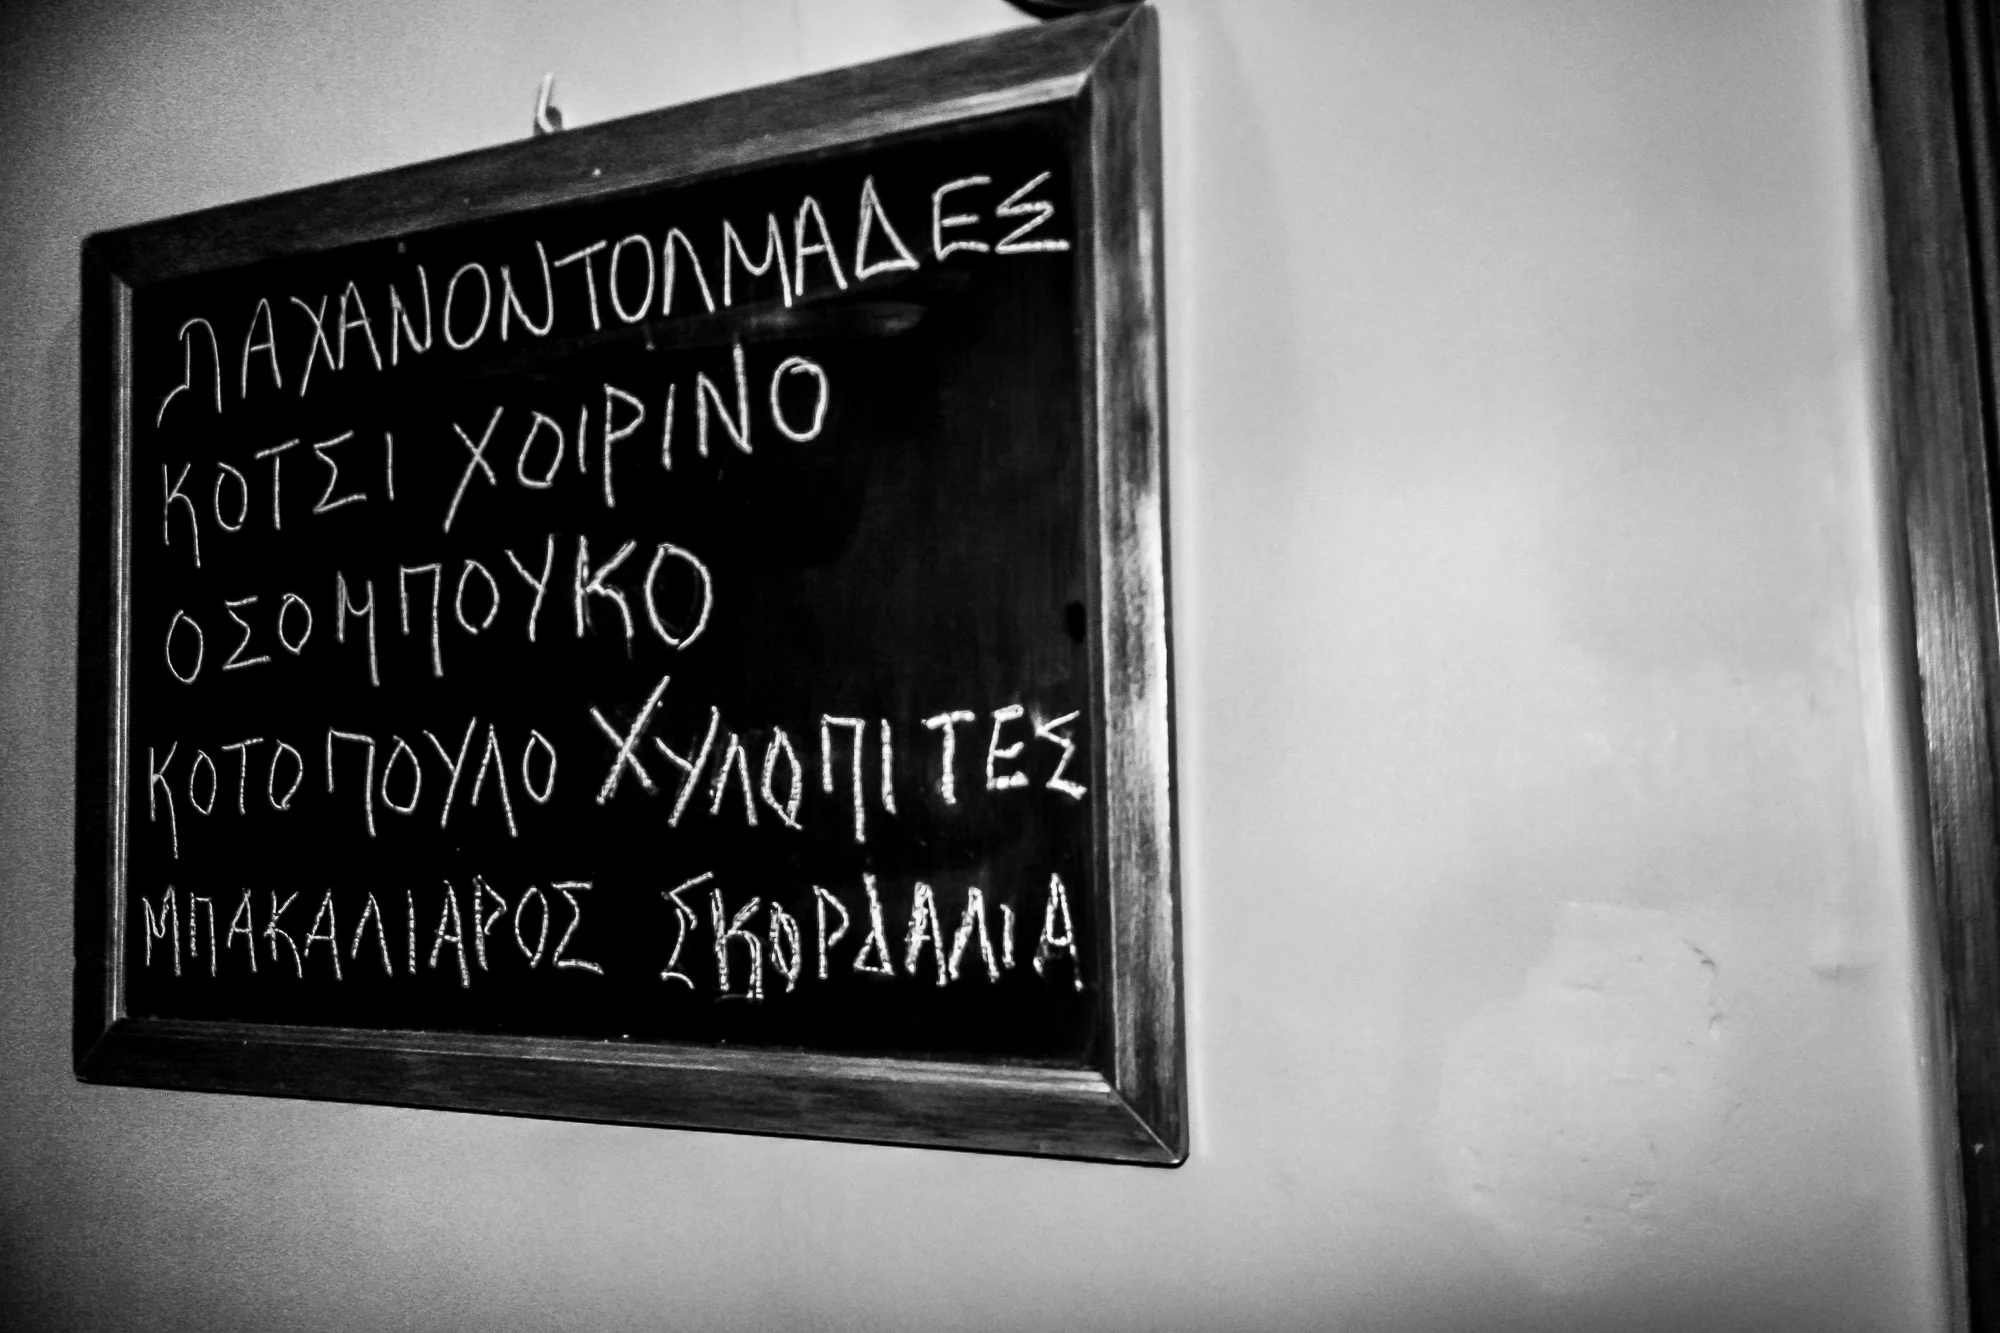 ΛΑΧΑΝΟΝΤΟΛΜΑΔΕΣ
ΚΟΤΣΙ ΧΟΙΡΙΝΟ
ΟΣΟΜΠΟΥΚΟ
ΚΟΤΟΠΟΥΛΟ ΧΥΛΟΠΙΤΕΣ
ΜΠΑΚΑΛΙΑΡΟΣ ΣΚΟΡΔΑΛΙΑ